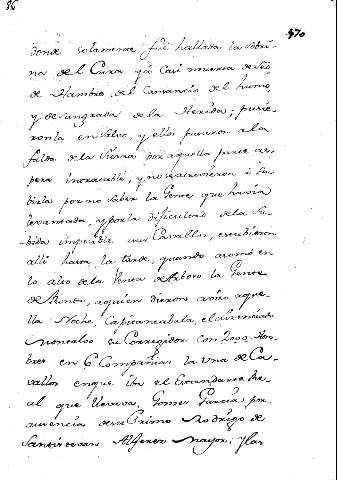 86
470
donde solamente fué hallada la Sobri-
na del Cura yá Casi muerta de Sed
de Hambre, del Cansancio del humo,
y desangrada de la Herida; pusie-
ronla en Salvo, y ellos pasaron ala
falda de la Sierra por aquella parte as-
pera Inaccesible, y no se atrevieron á Su-
birla por no Saber la Gente que havia
levantada, y por la dificultad de la Su-
bida imposible aus Cavallos, estubieron
alli hasta la tarde, quando asomó en
lo alto de la Gente
de Ronda, aquien dieron aviso aque-
lla Noche, Capitaneabala, el Licenciado
su Corregidor con 2000 Hom-
bres en 6 Compañias la una de Ca-
vallos enque iba el Estandarte Re-
al que llevava, Gomez Garcia por
ausencia desu Primo Rodrigo de
Santistevan Alferez Mayor; y las